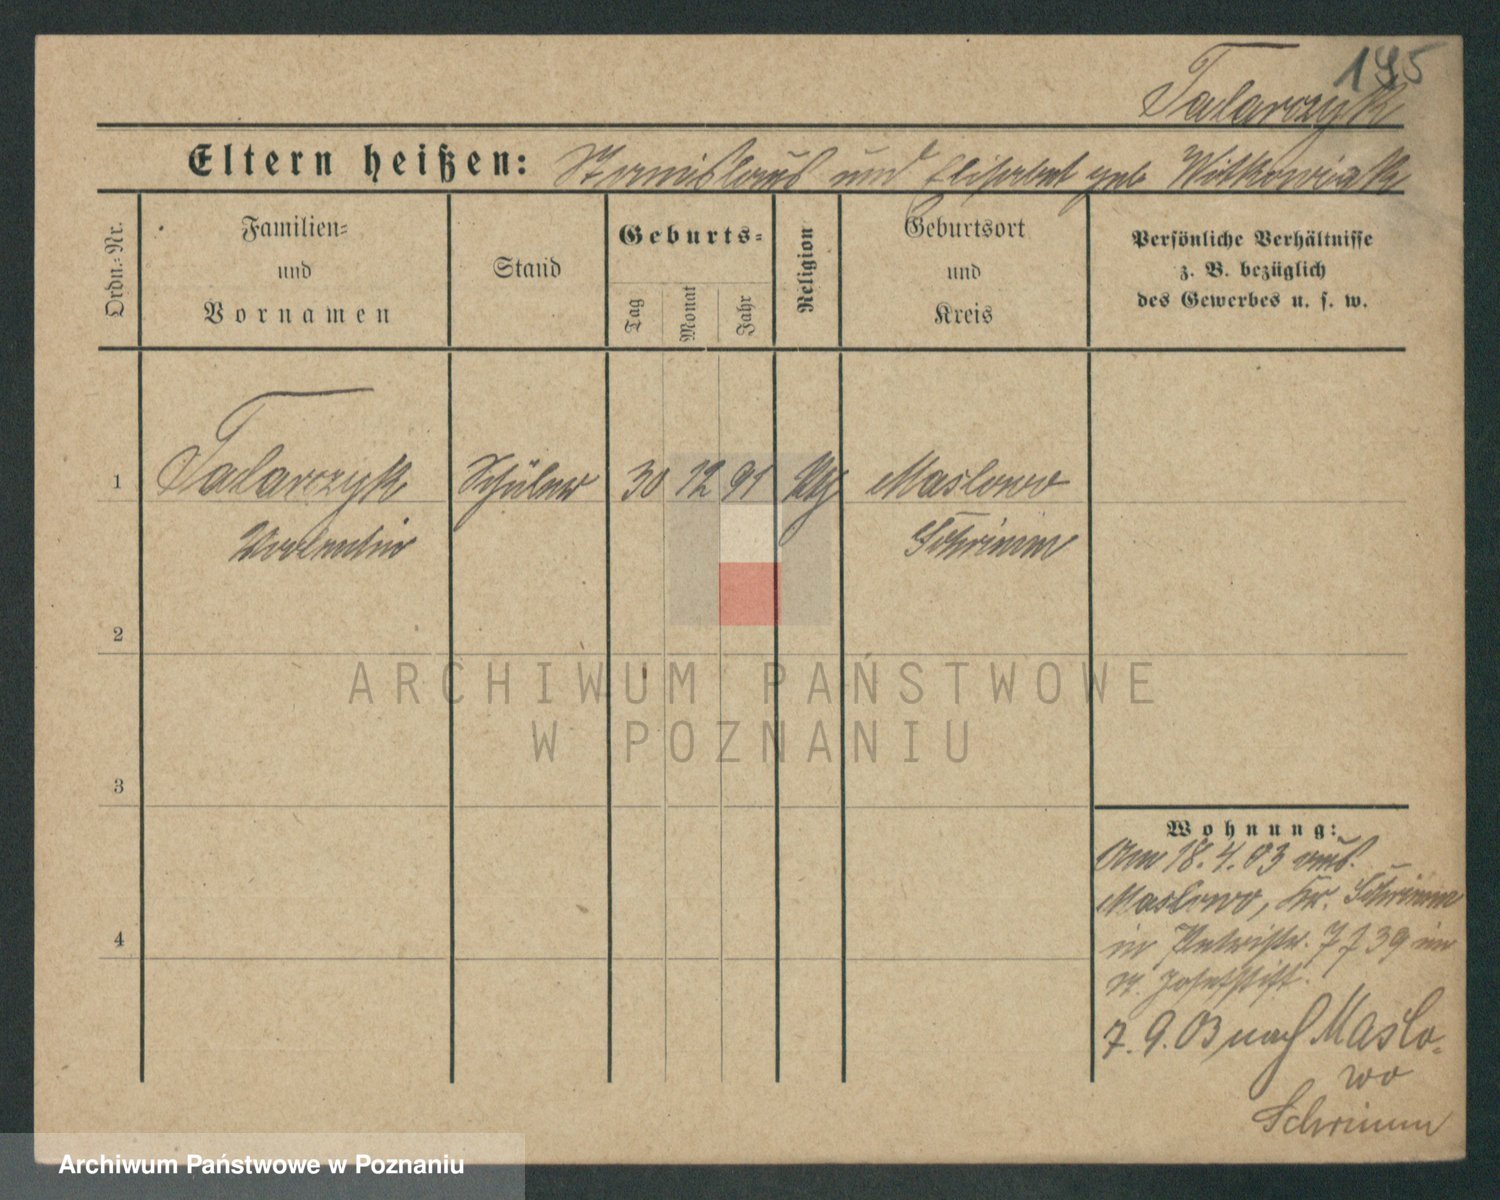 195
Talarczyk
Eltern heißen: Stanislaus und Elisabet geb Witkowiak
Ordn.-Nr.
Familien-
und
Vornamen
Stand
Geburts-
Tag
Monat
Jahr
Religion
Geburtsort
und
Kreis
Persönliche Verhältnisse
z. B. bezüglich
des Gewerbes u. s. w.
1 Talarczyk Schüler 30 12 91 Maslowo
Valentin Schrimm
2
3
4
ARCHIWUM PAŃSTWOWE
W POZNANIU
Wohnung:
Am 18.4.03 aus
Maslowo, Kr. Schrimm
in 39 im
Josefstift.
7.9.03 nach Maslo-
wo
Schrimm
Archiwum Państwowe w Poznaniu